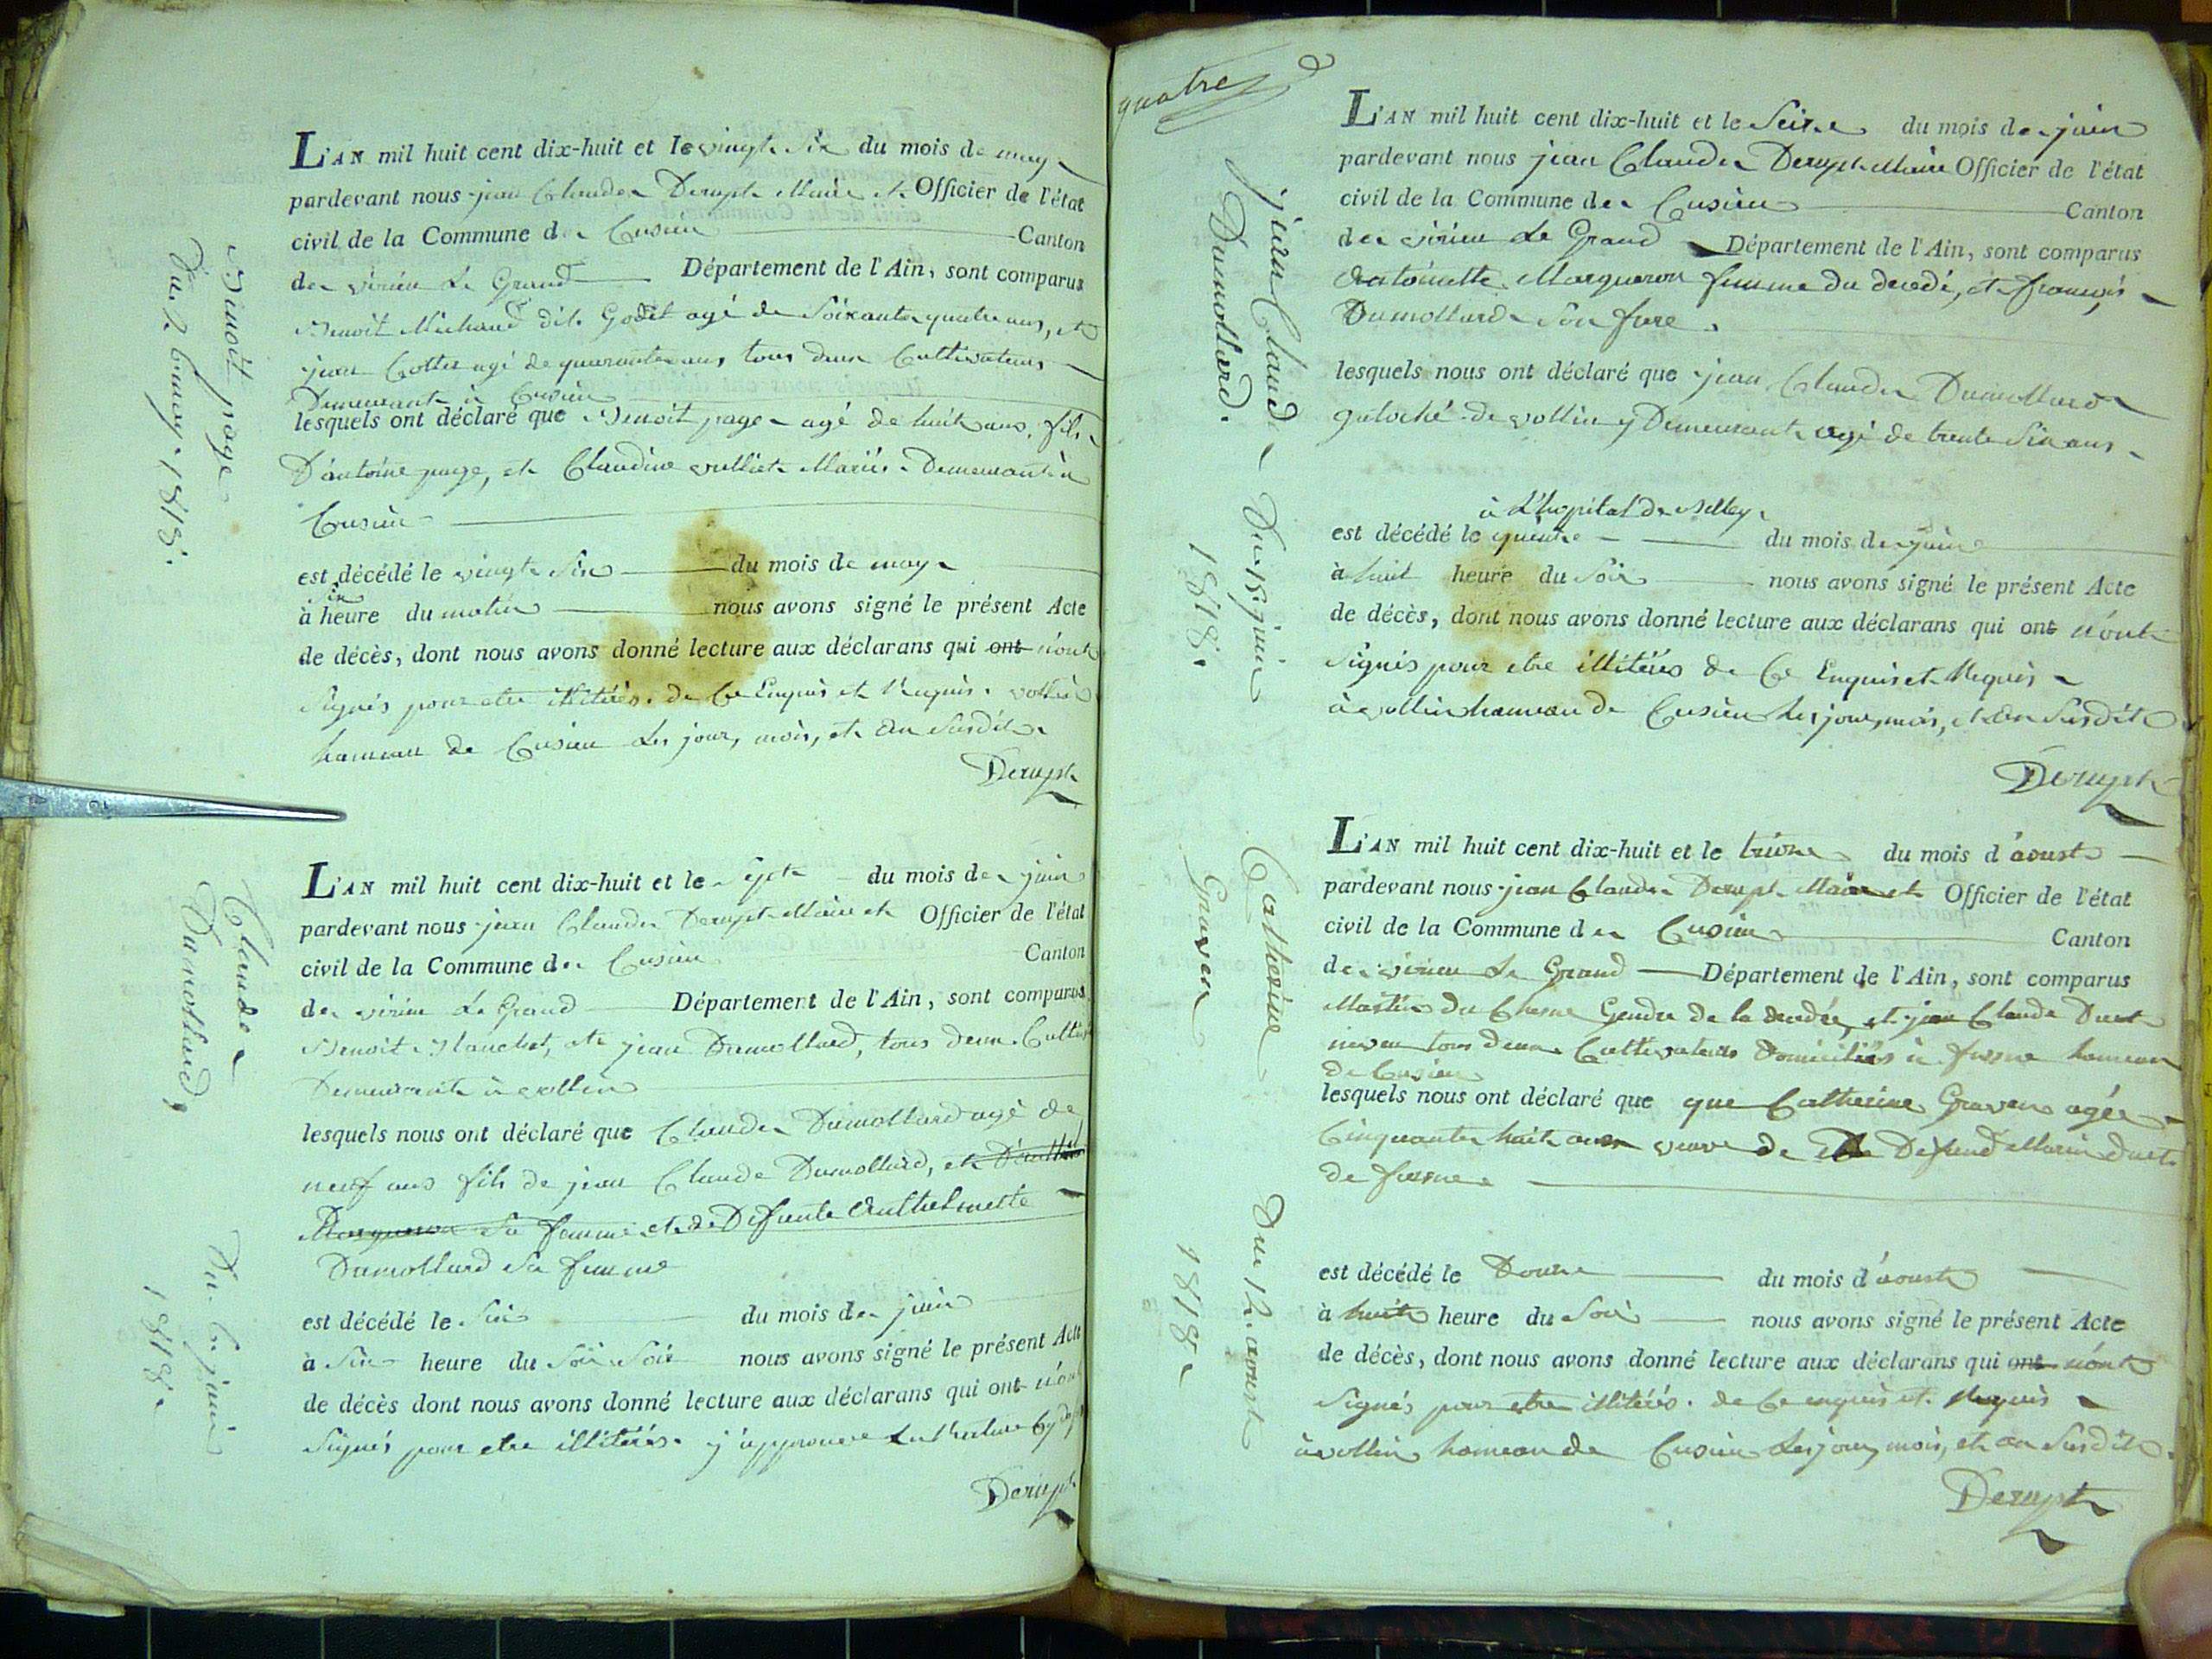 Binoît page
Du 26 may 1818.
L'AN mil huit cent dix-huit et le vingt six du mois de may
pardevant nous jean Claude Derupt Maire et Officier de l'état
civil de la Commune de Cusieu Canton
de virieu Le Grand Département de l'Ain, sont comparus
Benoit Michaud dit Godet agé de Soixante quatre ans, et
jean Cottet agé de quarante ans tous deux Cultivateurs
Demeurant à Cusieu
lesquels ont déclaré que Benoit page agé de huit ans, fils
D'antoine page, et Claudine vulliet Mariés Demeurant à
Cusieu
est décédé le vingt Six du mois de may
à Six heure du matin nous avons signé le présent Acte
de décès, dont nous avons donné lecture aux déclarans qui ont n'ont
Signés pour etre illitérés. de Ce Enquis et Requis. vollin
hameau de Cusieu Les jour, mois, et an Susdit
Derupt
Claude
Dumollard,
Du 6 juin
1818.
L'AN mil huit cent dix-huit et le Sept du mois de juin
pardevant nous jean Claude Derupt Maire et Officier de l'état
civil de la Commune de Cusieu Canton
de virieu Le Grand Département de l'Ain, sont comparus
Benoit Blanchet, et jean Dumollard, tous deux Cultiv
Demeurant à vollin
lesquels nous ont déclaré que Claude Dumollard agé de
neuf ans fils de jean Claude Dumollard, et
Marqueron Sa femme et de Defunte Anthelmette
Dumollard Sa femme
est décédé le Six du mois de juin
à Six heure du Soir Soir nous avons signé le présent Acte
de décès dont nous avons donné lecture aux déclarans qui ont n'ont
Signés pour etre illitérés. j'approuve La Rature
Derupt
quatre
jean Claude
Dumollard.
Du 15 juin
1818.
L'AN mil huit cent dix-huit et le Seize du mois de juin
pardevant nous jean Claude Derupt Maire Officier de l'état
civil de la Commune de Cusieu Canton
de virieu Le Grand Département de l'Ain, sont comparus
Antoinette Marqueron femme du decedé, et françois
Dumollard Son frere.
lesquels nous ont déclaré que jean Claude Dumollard
galoché de vollin y Demeurant agé de trente Six ans
à L'hopital de Belley
est décédé le quinze du mois de juin
à huit heure du Soir nous avons signé le présent Acte
de décès, dont nous avons donné lecture aux déclarans qui ont n'ont
Signés pour etre illitérés de Ce Enquis et Requis
à vollin hameau de Cusieu les jour, mois, et an Susdit
Derupt
Catherine
Graven
Du 12 aoust
1818
L'AN mil huit cent dix-huit et le treize du mois d'aoust
pardevant nous jean Claude Derupt Maire et Officier de l'état
civil de la Commune de Cusieu Canton
de virieu Le Grand Département de l'Ain, sont comparus
Martin Du Chesne Gendre de la decedée, et jean Claude Duet
neveu tous deux Cultivateurs Domiciliés à fusne hameau
de Cusieu
lesquels nous ont déclaré que que Catherine Graven agée
Cinquante huit ans veuve de Defund Marin Duet
de fusne
est décédé le Douze du mois d'aoust
à huit heure du Soir nous avons signé le présent Acte
de décès, dont nous avons donné lecture aux déclarans qui ont n'ont
Signés pour etre illitérés. de Ce enquis et Requis
à vollin hameau de Cusieu Les jour, mois, et an Susdit.
Derupt